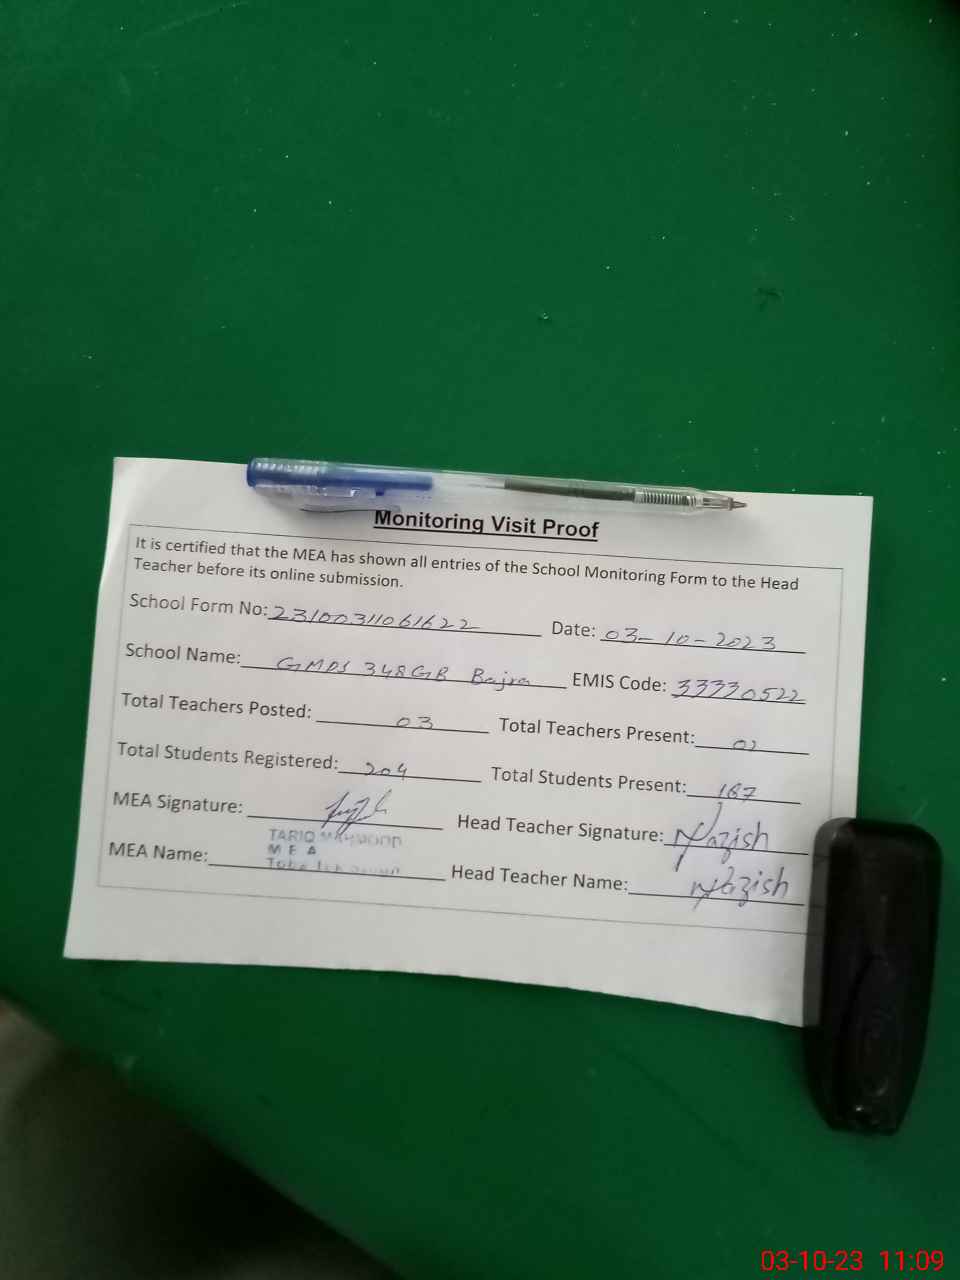 Monitoring Visit Proof
It is certified that the MEA has shown all entries of the School Monitoring Form to the Head
Teacher before its online submission.
School Form No: 23100311061622 Date: 03-10-2023
School Name: GMPS 348 GB Bajra EMIS Code: 33330522
Total Teachers Posted: 03 Total Teachers Present:
Total Students Registered: 204 Total Students Present: 187
MEA Signature: Head Teacher Signature: Nazish
TARIQ MAHMOOD
MEA Name: M E A Head Teacher Name: Nazish
Toba
03-10-23 11:09